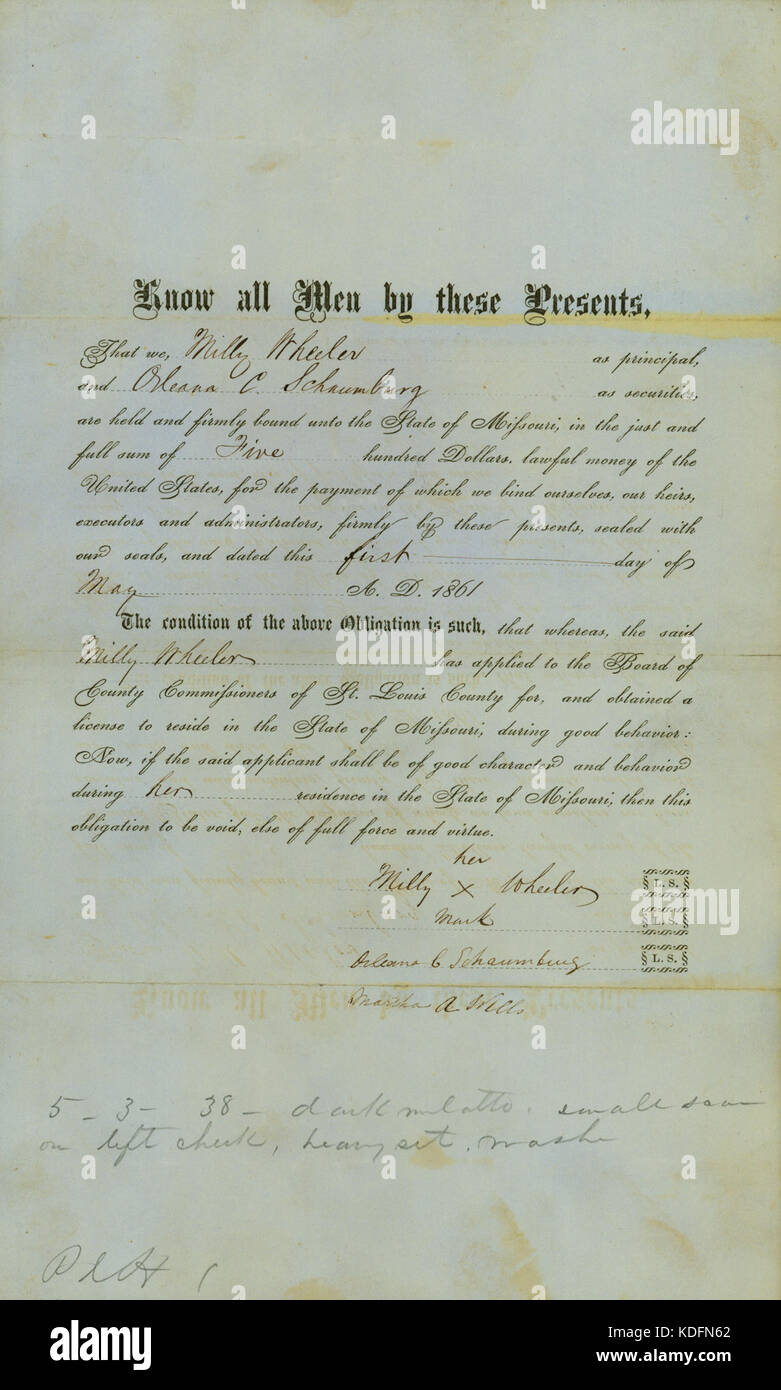 Know all Men by these Presents,
That we, Milly Wheeler as principal,
and Orleana C. Schaumburg as securities,
are held and firmly bound unto the State of Missouri, in the just and
full sum of Five hundred Dollars, lawful money of the
United States, for the payment of which we bind ourselves, our heirs,
executors and administrators, firmly by these presents, sealed with
our seals, and dated this first day of
May A. D. 1861
The condition of the above Obligation is such, that whereas, the said
Milly Wheeler has applied to the Board of
County Commissioners of St. Louis County for, and obtained a
license to reside in the State of Missouri, during good behavior:
Now, if the said applicant shall be of good character and behavior
during her residence in the State of Missouri, then this
obligation to be void, else of full force and virtue.
her
Milly X Wheeler L. S.
Mark L. S.
Orleana C Schaumburg L. S.
Martha A Wells
5 - 3 - 38 - dark mulatto. small scar
on left cheek, heavy set. washer
alamy stock photo
KDFN62
www.alamy.com